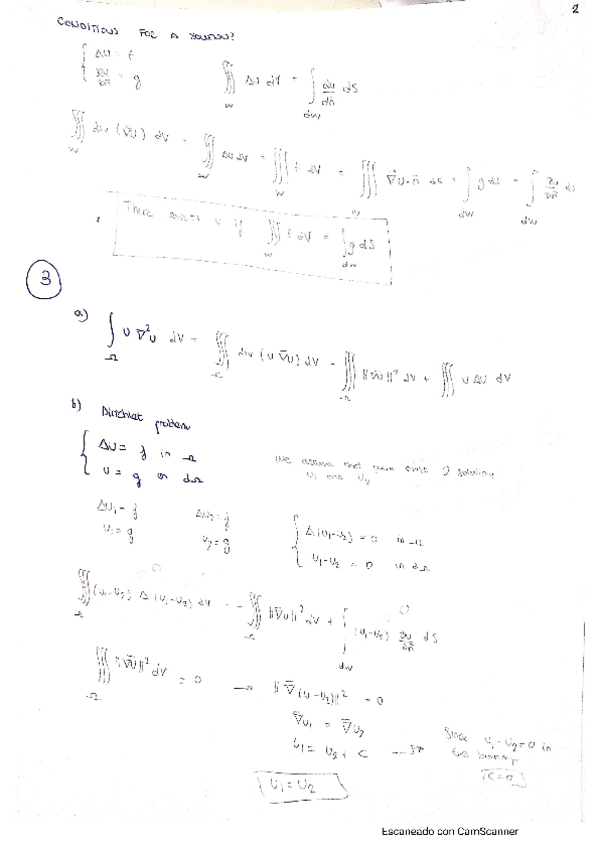 2
CONDITIONS FOR A SOLUTION?
Δu = f
∂u/∂n = g
∭_W Δu dV = ∫_∂W ∂u/∂n dS
∭_W div (∇u) dV = ∭_W Δu dV = ∭_W f dV = ∭_W ∇u·n dS = ∫_∂W g dS = ∫_∂W ∂u/∂n dS
There exists u if ∭_W f dV = ∫_∂Ω g dS
3
a) ∫_Ω u ∇²u dV = ∭_Ω div (u ∇u) dV = ∭_Ω ||∇u||² dV + ∭ u Δu dV
b) Dirichlet problem
Δu = f in Ω
u = g on ∂Ω
We assume that there exist 2 solutions
u₁ and u₂
Δu₁ = f Δu₂ = f
u₁ = g u₂ = g
Δ(u₁-u₂) = 0 in Ω
u₁-u₂ = 0 in ∂Ω
0
∭_Ω (u₁-u₂) Δ(u₁-u₂) dV = - ∭_Ω ||∇u||² dV + ∫_∂W (u₁-u₂) ∂u/∂n dS
∭_Ω ||∇u||² dV = 0 → ||∇(u₁-u₂)||² = 0
∇u₁ = ∇u₂
u₁ = u₂ + C
Since u₁-u₂=0 in
the boundary
C=0
u₁ = u₂
Escaneado con CamScanner